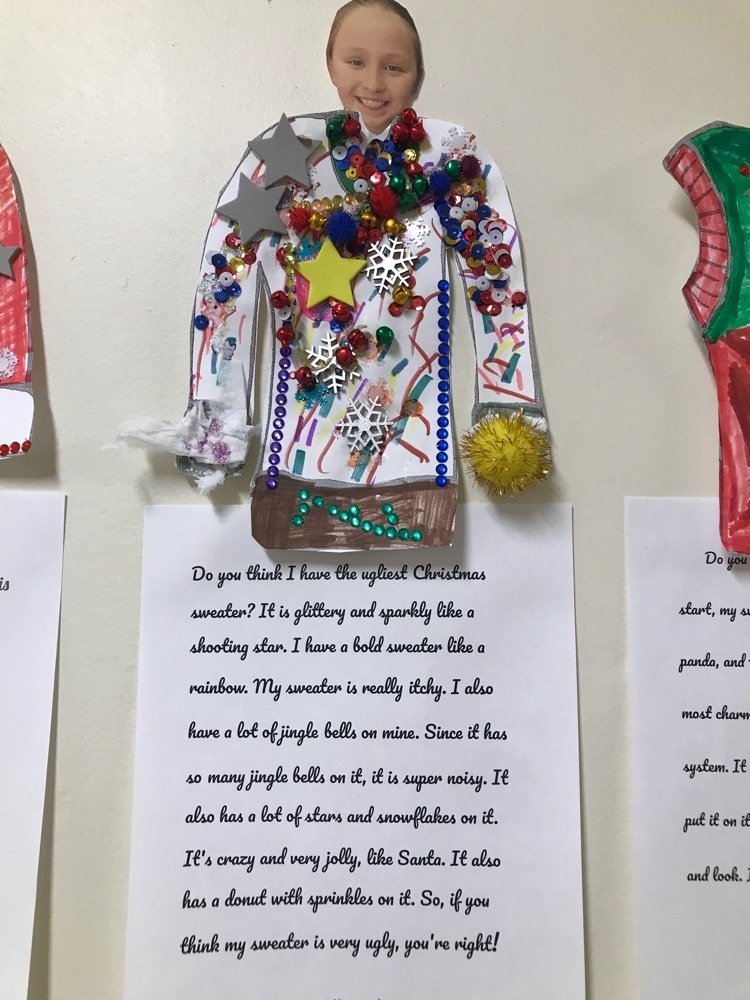 Do you think I have the ugliest Christmas
sweater? It is glittery and sparkly like a
shooting star. I have a bold sweater like a
rainbow. My sweater is really itchy. I also
have a lot of jingle bells on mine. Since it has
so many jingle bells on it, it is super noisy. It
also has a lot of stars and snowflakes on it.
It's crazy and very jolly, like Santa. It also
has a donut with sprinkles on it. So, if you
think my sweater is very ugly, you're right!
is
Do you
start, my
panda, and
most
system. It
put it on it
and look.